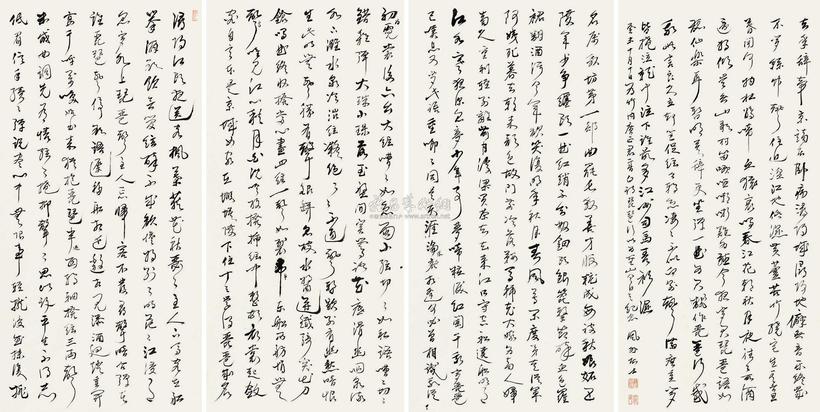 潯陽江頭夜送客楓葉荻花秋瑟瑟主人下馬客在船
舉酒欲飲無管絃醉不成歡慘將別別時茫茫江浸月
忽聞水上琵琶聲主人忘歸客不發尋聲暗問彈者
誰琵琶聲停欲語遲移船相近邀相見添酒迴燈重開
宴千呼萬喚始出來猶抱琵琶半遮面轉軸撥絃三兩聲
未成曲調先有情絃絃掩抑聲聲思似訴平生不得志
低眉信手續續彈說盡心中無限事輕攏慢撚抹復挑
初為霓裳後六幺大絃嘈嘈如急雨小絃切切如私語嘈嘈切切
錯雜彈大珠小珠落玉盤間關鶯語花底滑幽咽泉流
冰下難水泉冷澀絃凝絕凝絕不通聲漸歇別有幽愁暗恨
生此時無聲勝有聲銀瓶乍破水漿迸鐵騎突出刀
鎗鳴曲終收撥當心畫四絃一聲如裂帛東船西舫悄無
言唯見江心秋月白沈吟放撥插絃中整頓衣裳起斂
容自言本是京城女家在蝦蟆陵下住十三學得琵琶成
名屬教坊第一部曲罷曾教善才服妝成每被秋娘妒五
陵年少爭纏頭一曲紅綃不知數鈿頭銀篦擊節碎血色羅
裙翻酒污今年歡笑復明年秋月春風等閒度弟走從軍
阿姨死暮去朝來顏色故門前冷落鞍馬稀老大嫁作商人婦
商人重利輕別離前月浮梁買茶去去來江口守空船遶船明月
江水寒夜深忽夢少年事夢啼妝淚紅闌干我聞琵琶
已嘆息又聞此語重唧唧同是天涯淪落人相逢何必曾相識我從
去年辭帝京謫居臥病潯陽城潯陽地僻無音樂終歲
不聞絲竹聲住近湓江地低濕黃蘆苦竹繞宅生其間
旦暮聞何物杜鵑啼血猿哀鳴春江花朝秋月夜往往取酒
還獨傾豈無山歌與村笛嘔啞嘲哳難為聽今夜聞君琵琶語如
聽仙樂耳暫明莫辭更坐彈一曲為君翻作琵琶行感
我此言良久立卻坐促絃絃轉急淒淒不似向前聲滿座重聞
皆掩泣就中泣下誰最多江州司馬青衫濕